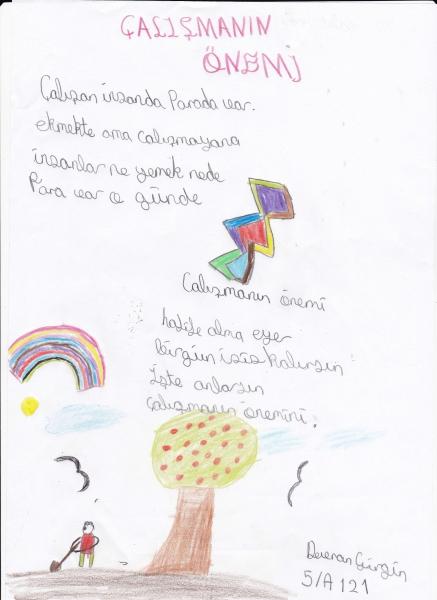 ÇALIŞMANIN
ÖNEMİ
Çalışan insanda Parada var.
ekmekte ama calışmayana
insanlar ne yemek nede
Para var o günde
Calışmanın önemi
hafife alma eyer
birgün işsiz kalırsan
işte anlarsın
çalışmanın önemini.
Devran Gürgün
5/A 121